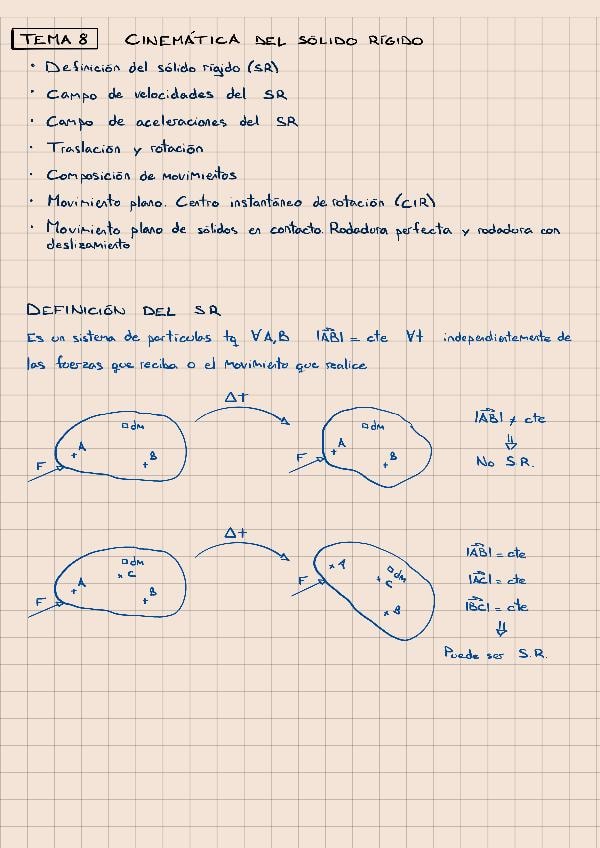 TEMA 8 CINEMÁTICA DEL SÓLIDO RÍGIDO
· Definición del sólido rígido (SR)
· Campo de velocidades del SR
· Campo de aceleraciones del SR
· Traslación y rotación
· Composición de movimientos
· Movimiento plano. Centro instantáneo de rotación (CIR)
· Movimiento plano de sólidos en contacto. Rodadura perfecta y rodadura con
deslizamiento
DEFINICIÓN DEL SR
Es un sistema de partículas tq ∀A,B |AB| = cte ∀t independientemente de
las fuerzas que reciba o el movimiento que realice
Δt
dm dm |AB| ≠ cte
A B A B ⇓
F F No S.R.
Δt
dm |AB| = cte
C A dm
A C |AC| = cte
B B |BC| = cte
F F ⇓
Puede ser S.R.